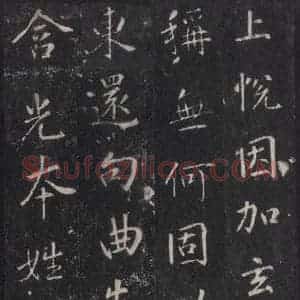 上悦因加玄
稱無何固
東還句曲
含光本姓
Shufaziliao.com